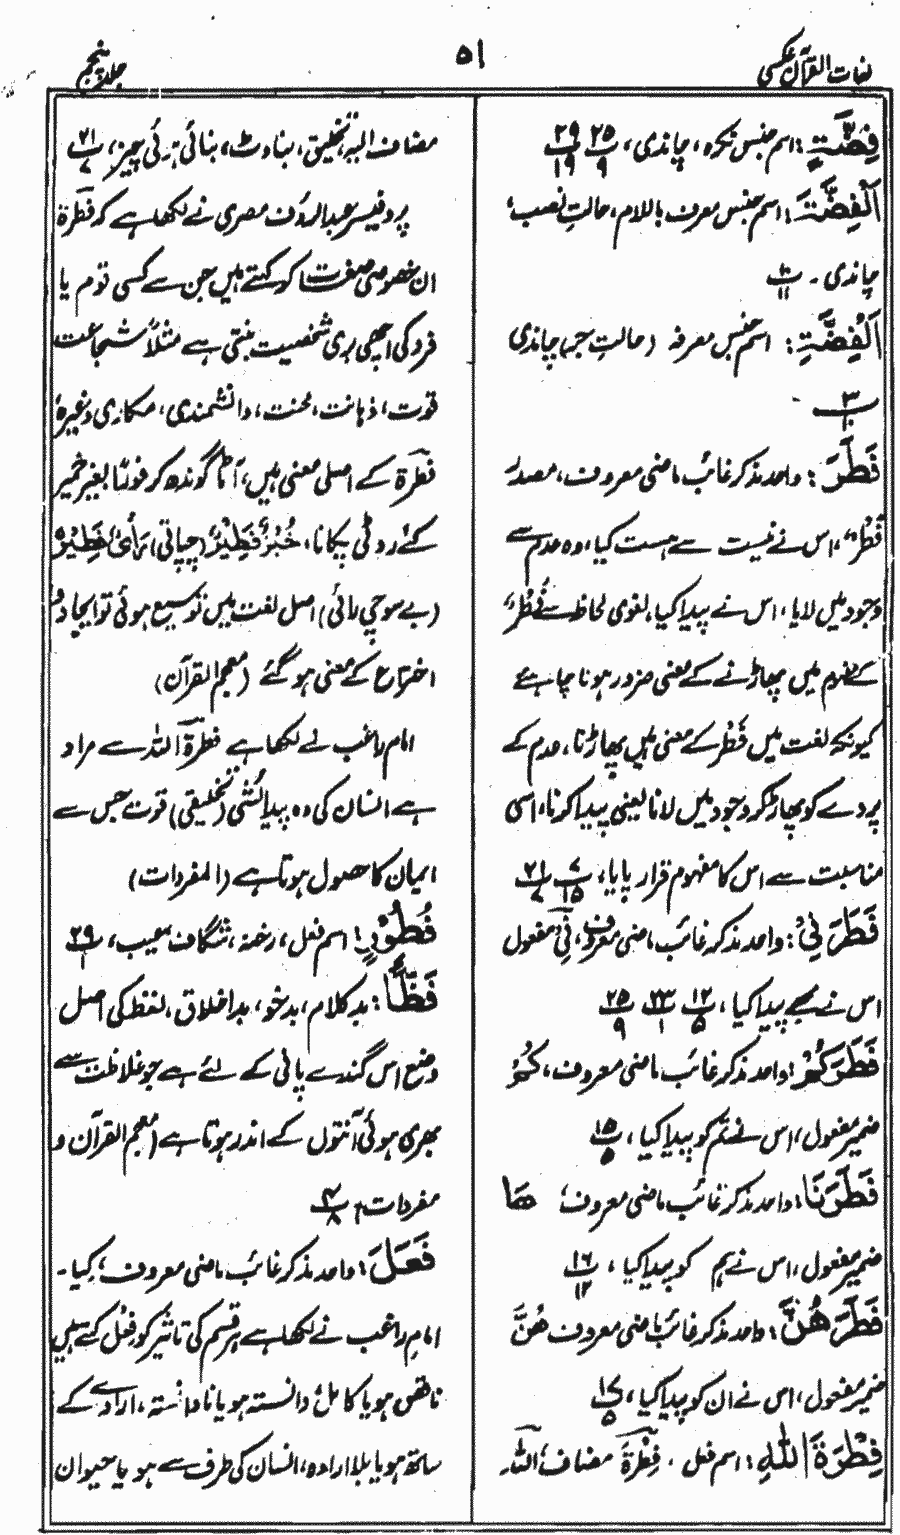 لغات القرآن عکسی
۵۱
جلد پنجم
فِضَّةٍ: اسم جنس نکرہ، چاندی، پ۲۵ ۹ پ۲۹ ۱۹
اَلْفِضَّةَ: اسم جنس معرف باللام، حالتِ نصب،
چاندی۔ پ۱۰ ۱۱
اَلْفِضَّةِ: اسم جنس معرفہ (حالتِ جر) چاندی
پ۳ ۱۰
فَطَرَ: واحد مذکر غائب ماضی معروف، مصدر
فَطْرٌ، اس نے نیست سے ہست کیا، وہ عدم سے
وجود میں لایا، اس نے پیدا کیا، لغوی لحاظ سے فَطْرٌ
کے مفہوم میں پھاڑنے کے معنی ضرور ہونا چاہئے
کیونکہ لغت میں فَطْر کے معنی ہیں پھاڑنا، عدم کے
پردے کو پھاڑ کر وجود میں لانا یعنی پیدا کرنا، اسی
مناسبت سے اس کا مفہوم قرار پایا، پ۷ ۱۵ پ۲۱ ۷
فَطَرَنِیْ: واحد مذکر غائب، ماضی معروف، نِیْ مفعول
اس نے مجھے پیدا کیا، پ۱۲ ۵ پ۲۳ ۱ پ۲۵ ۹
فَطَرَكُمْ: واحد مذکر غائب ماضی معروف، كُمْ
ضمیر مفعول، اس نے تم کو پیدا کیا، پ۱۵ ۵
فَطَرَنَا: واحد مذکر غائب ماضی معروف،
ضمیر مفعول، اس نے ہم کو پیدا کیا، پ۱۶ ۱۲
فَطَرَهُنَّ: واحد مذکر غائب ماضی معروف هُنَّ
ضمیر مفعول، اس نے ان کو پیدا کیا، پ۱۷ ۵
فِطْرَةَ اللّٰهِ: اسم فعل، فِطْرَةَ مضاف، اللّٰہ
مضاف الیہ، تخلیق، بناوٹ، بنائی ہوئی چیز، پ۲۱ ۷
پروفیسر عبدالرؤف مصری نے لکھا ہے کہ فطرۃ
ان خصوصی صفت کو کہتے ہیں جن سے کسی قوم یا
فرد کی اچھی بری شخصیت بنتی ہے مثلاً شجاعت
قوت، ذہانت، محنت، دانشمندی، مکاری وغیرہ
فطرۃ کے اصلی معنی ہیں، آٹا گوندھ کر فوراً بغیر خمیر
کئے روٹی پکانا، خُبْزٌ فَطِیْرٌ (چپاتی) رَأْیٌ فَطِیْرٌ
(بے سوچی رائی) اصل لغت میں توسیع ہوئی تو ایجاد و
اختراع کے معنی ہو گئے (معجم القرآن)
امام راغب نے لکھا ہے فطرۃ اللہ سے مراد
ہے انسان کی وہ پیدائشی (تخلیقی) قوت جس سے
ایمان کا حصول ہوتا ہے (المفردات)
فُطُوْرٍ: اسم فعل، رخنہ، شگاف، عیب، پ۲۹ ۱
فَظًّا: بد کلام، بد خو، بد اخلاق، لفظ کی اصل
وضع اس گندے پانی کے لئے ہے جو غلاظت سے
بھری ہوئی آنتوں کے اندر ہوتا ہے (معجم القرآن و
مفردات) پ۴ ۸
فَعَلَ: واحد مذکر غائب ماضی معروف، کیا۔
امام راغب نے لکھا ہے ہر قسم کی تاثیر کو فعل کہتے ہیں
ناقص ہو یا کامل دانستہ ہو یا نا دانستہ، ارادے کے
ساتھ ہو یا بلا ارادہ، انسان کی طرف سے ہو یا حیوان